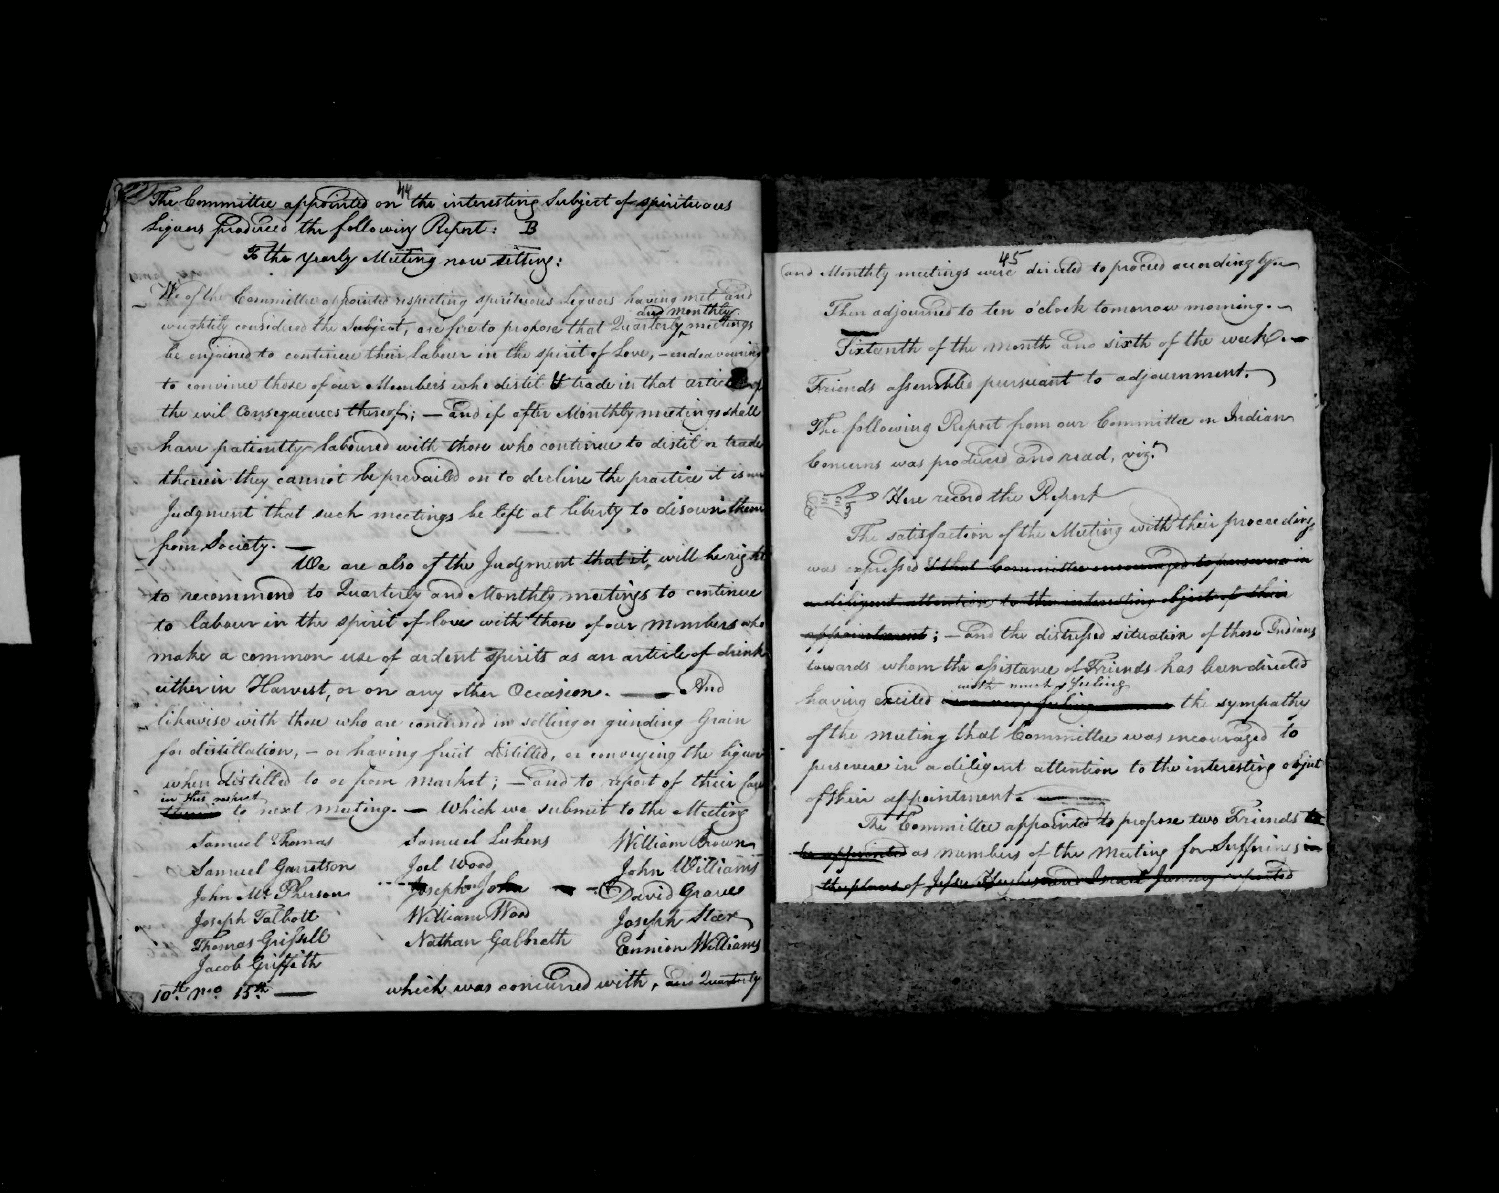 44
The Committee appointed on the interesting Subject of spirituous
Liquors produced the following Report: B
To the Yearly Meeting now sitting:
We of the Committee appointed respecting spirituous Liquors having met, and
and monthly
weightily considered the Subject, are free to propose that Quarterly meetings
be enjoined to continue their labour in the spirit of Love, – endeavouring
to convince those of our Members who distil & trade in that article of
the evil Consequences thereof; – and if after Monthly meetings shall
have patiently laboured with those who continue to distil or trade
therein they cannot be prevailed on to decline the practice it is our
Judgment that such meetings be left at liberty to disown them
from Society. —
We are also of the Judgment that it will be right
to recommend to Quarterly and Monthly meetings to continue
to labour in the spirit of love with those of our Members who
make a common use of ardent spirits as an article of drink
either in Harvest, or on any other Occasion. — And
likewise with those who are concerned in selling or grinding Grain
for distillation, – or having fruit distilled, or conveying the liquor
when distilled to or from market; – and to report of their care
in this respect
to next meeting. — Which we submit to the Meeting
Samuel Thomas Samuel Lukens William Brown
Samuel Garretson Joel Wood John Williams
John Mc Pherson Joseph John David Grave
Joseph Talbott William Wood Joseph Steer
Thomas Grissell Nathan Galbreath Ennion Williams
Jacob Griffith
10th mo 15th — which was concurred with, and Quarterly
45
and Monthly meetings were directed to proceed accordingly
Then adjourned to ten o'clock tomorrow morning. –
Sixteenth of the month and sixth of the week. –
Friends assembled pursuant to adjournment.
The following Report from our Committee on Indian
Concerns was produced and read, viz.
Here record the Report
The satisfaction of the Meeting with their proceedings
was expressed & that Committee encouraged to persevere in
a diligent attention to the interesting object of their
appointment; – and the distressed situation of those Indians
towards whom the assistance of Friends has been directed
with much feeling
having excited the sympathy
of the meeting that Committee was encouraged to
persevere in a diligent attention to the interesting object
of their appointment. —
The Committee appointed to propose two Friends to
be appointed as members of the Meeting for Sufferings in
the place of Jesse Hughes and Israel Jenney reported